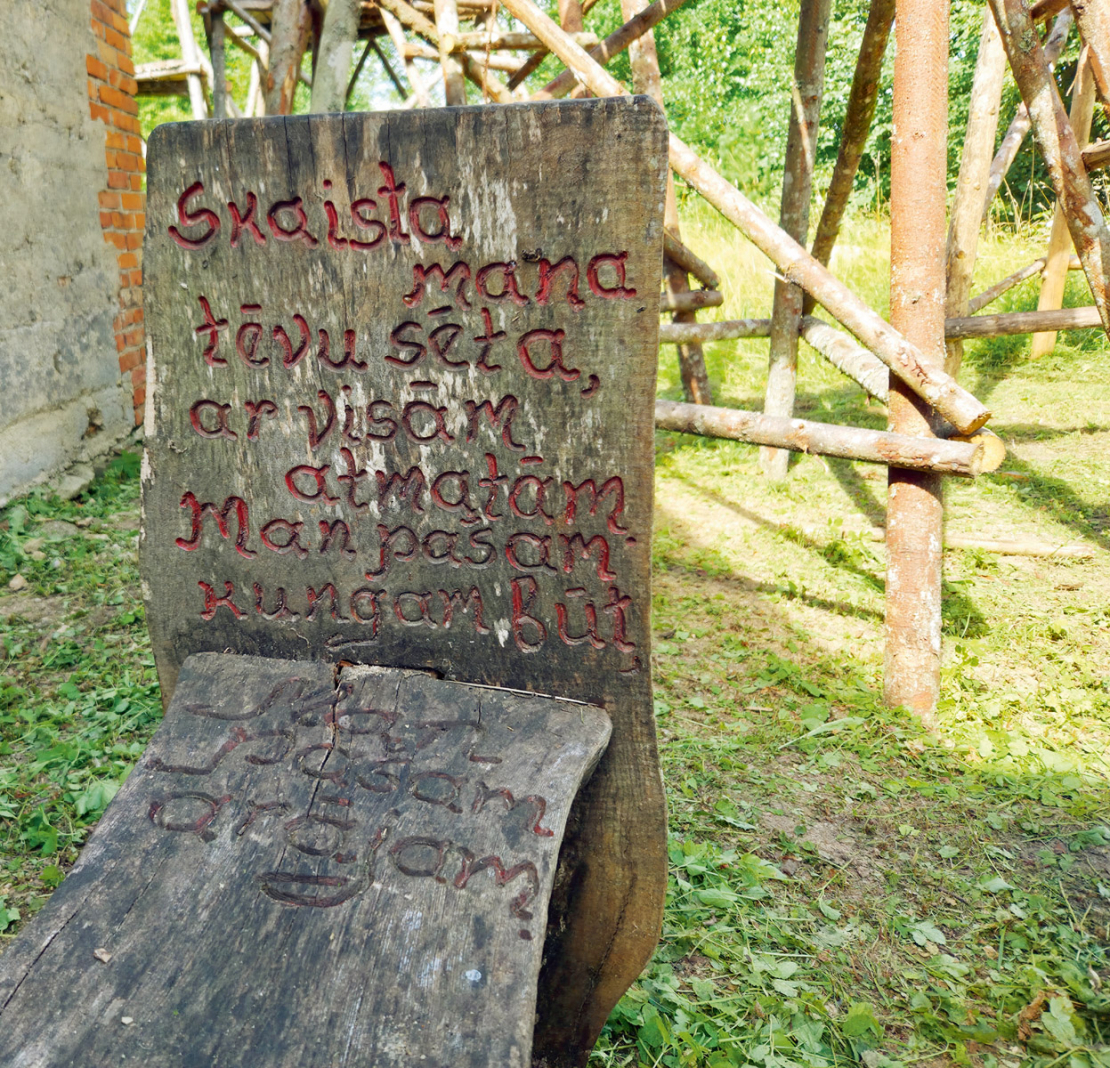 Skaista
mana
tēvu sēta,
ar visām
atmatām
Man pašam
kungam būt,
Man
pašam
arājam.